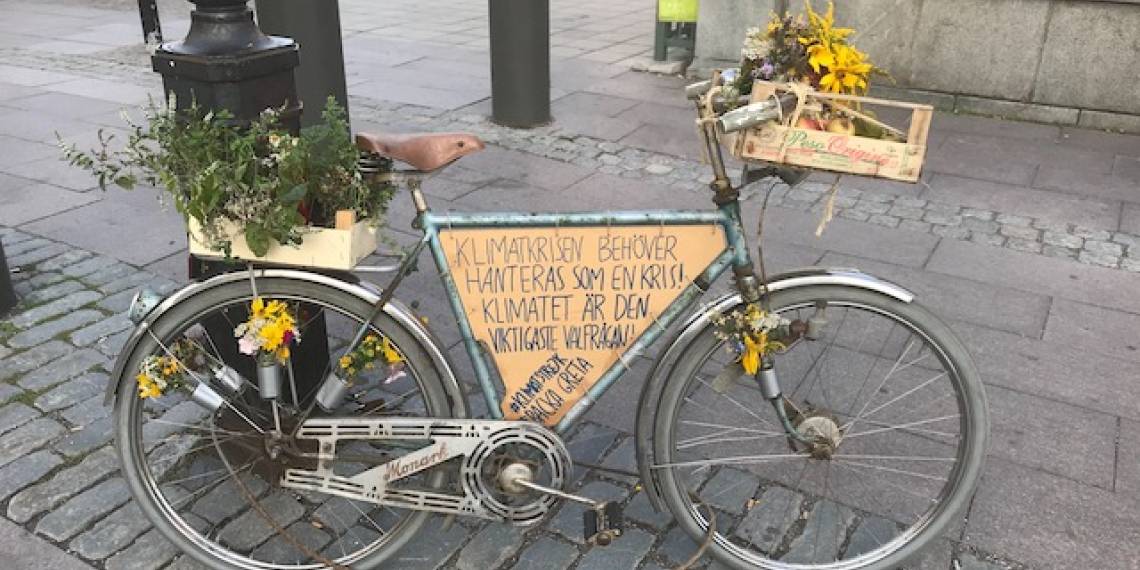 Peso Origin
KLIMATKRISEN BEHÖVER
HANTERAS SOM EN KRIS!
KLIMATET ÄR DEN
VIKTIGASTE VALFRÅGAN!
#KLIMATSTREJK
BACKA GRETA
Monark